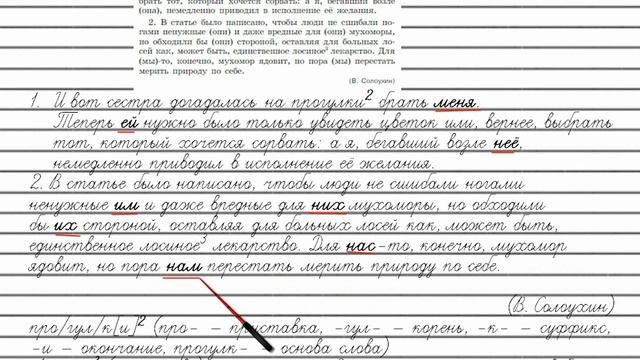 брать тот, который хочется сорвать: а я, бегавший возле
(она), немедленно приводил в исполнение её желания.
2. В статье было написано, чтобы люди не сшибали но-
гами ненужные (они) и даже вредные для (они) мухоморы,
но обходили бы (они) стороной, оставляя для больных ло-
сей как, может быть, единственное лосиное³ лекарство. Для
(мы)-то, конечно, мухомор ядовит, но пора (мы) перестать
мерить природу по себе.
(В. Солоухин)
1. И вот сестра догадалась на прогулки² брать меня.
Теперь ей нужно было только увидеть цветок или, вернее, выбрать
тот, который хочется сорвать: а я, бегавший возле неё,
немедленно приводил в исполнение её желания.
2. В статье было написано, чтобы люди не сшибали ногами
ненужные им и даже вредные для них мухоморы, но обходили
бы их стороной, оставляя для больных лосей как, может быть,
единственное лосиное³ лекарство. Для нас-то, конечно, мухомор
ядовит, но пора нам перестать мерить природу по себе.
(В. Солоухин)
про/гул/к[и]² (про- - приставка, -гул- - корень, -к- - суффикс,
-и - окончание, прогулк- - основа слова)